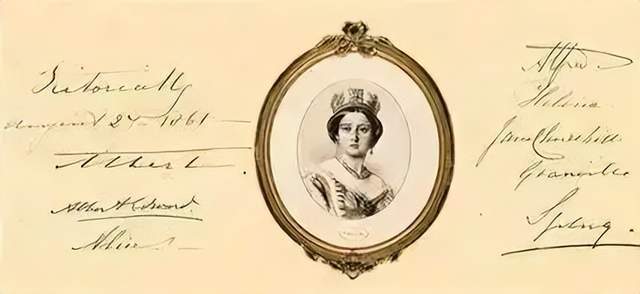 Victoria R
August 27 - 1861 -
Albert.
Albert Edward.
Alice -
Alfred
Helena
Jane Churchill
Granville
Sydney.